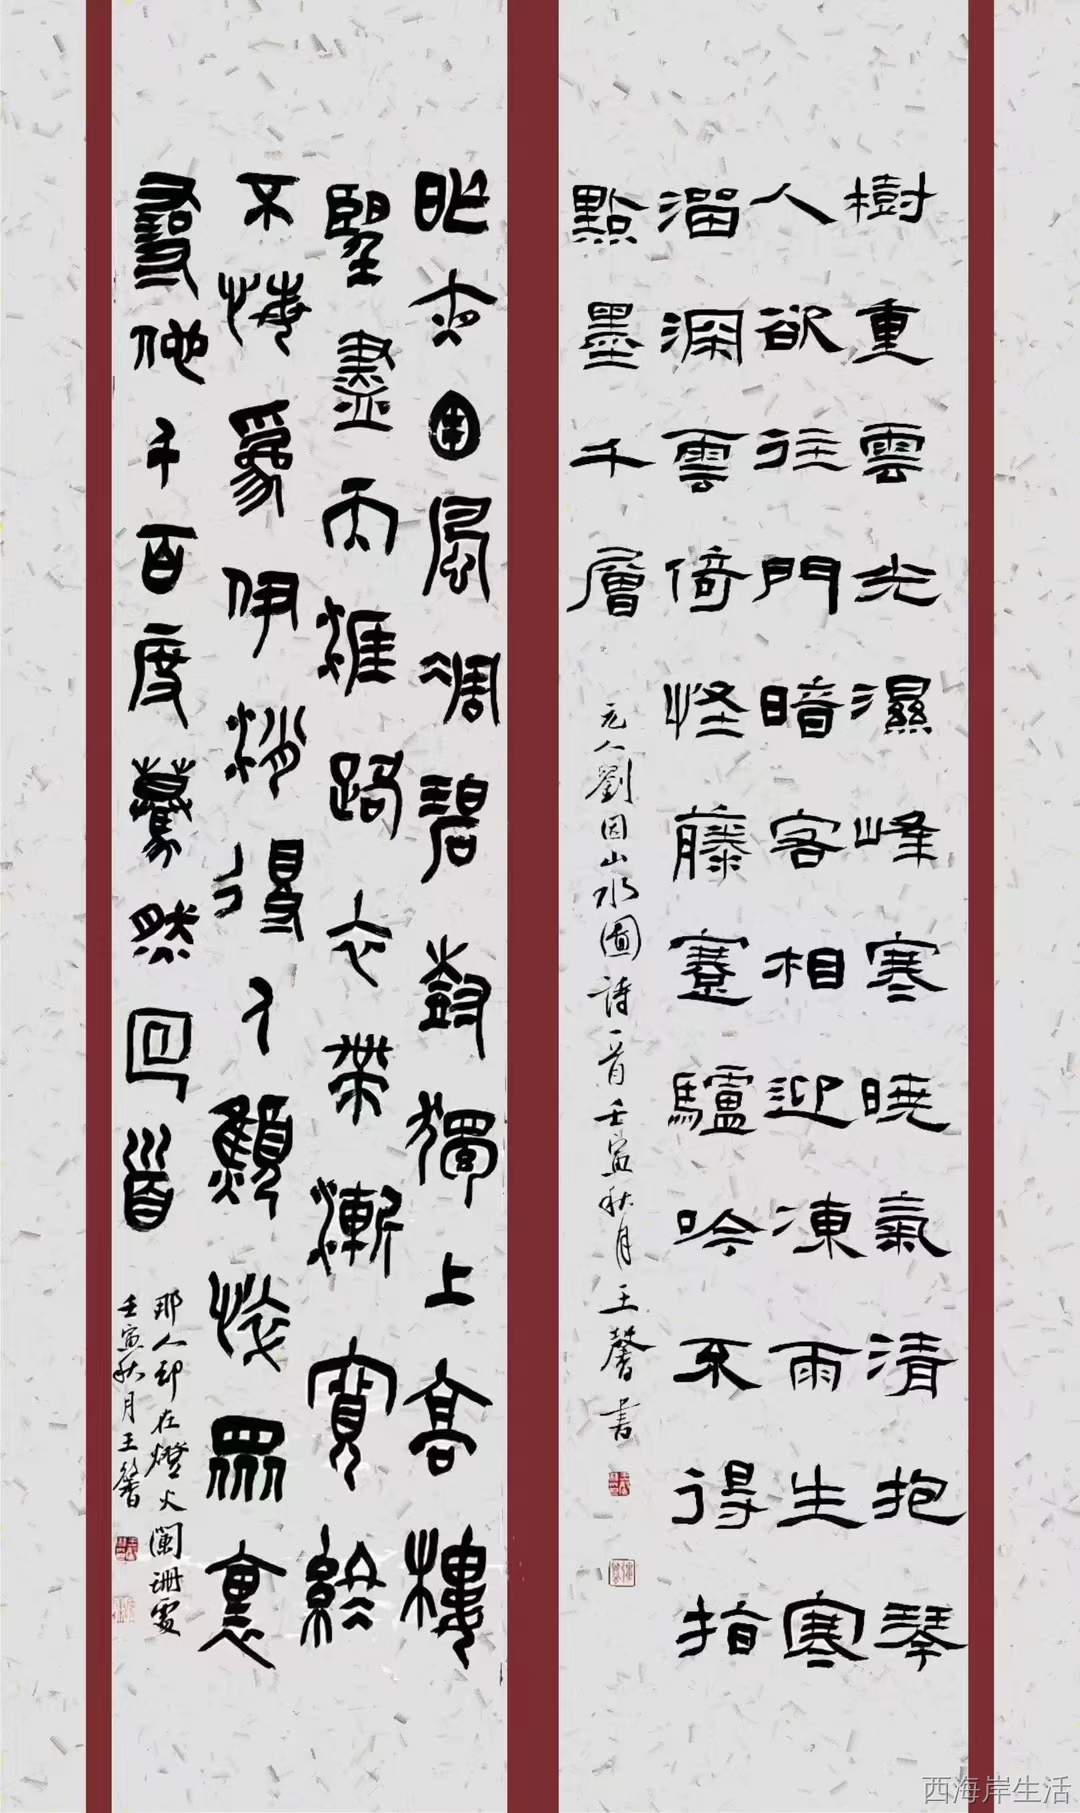 樹重雲光濕峰寒曉氣清抱琴
人欲往門暗客相迎凍雨生寒
溜深雲倚怪藤蹇驢吟不得指
點墨千層
元人劉因山水圖詩一首壬寅秋月王馨書
昨夜西風凋碧樹獨上高樓
望盡天涯路衣帶漸寬終
不悔爲伊消得人顦悴眾裏
尋他千百度驀然回首
那人却在燈火闌珊處
壬寅秋月王馨
西海岸生活